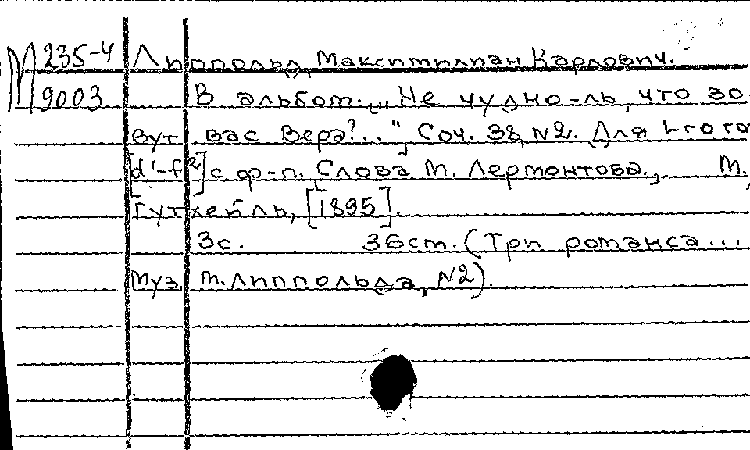 М 235-4 Липпольд, Максимилиан Карлович.
9003 В альбом. „Не чудно-ль, что зо-
вут вас Вера?..", Соч. 38, №2. Для 1-го го
[d'-f²] с ф-п. Слова М. Лермонтова, М.,
Гутхейль, [1895].
3с. 36ст. (Три романса...
Муз. М. Липпольда, №2).